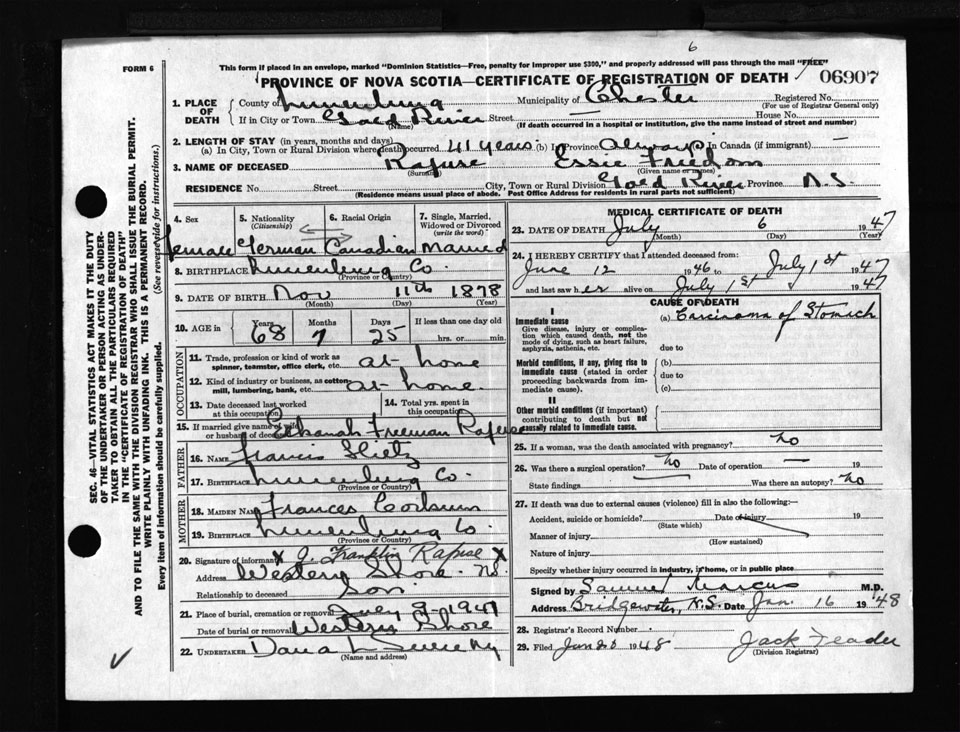 6
FORM 6
This form if placed in an envelope, marked "Dominion Statistics—Free, penalty for improper use $300," and properly addressed will pass through the mail "FREE"
PROVINCE OF NOVA SCOTIA—CERTIFICATE OF REGISTRATION OF DEATH
06907
1. PLACE OF DEATH
County of Lunenburg Municipality of Chester Registered No.
(For use of Registrar General only)
If in City or Town Gold River Street House No.
(Name) (If death occurred in a hospital or institution, give the name instead of street and number)
2. LENGTH OF STAY (in years, months and days)
(a) In City, Town or Rural Division where death occurred 41 years (b) in Province always In Canada (if immigrant) —
3. NAME OF DECEASED Rafuse Essie Freedom
(Surname) (Given name or names)
RESIDENCE No. Street City, Town or Rural Division Gold River Province N.S
(Residence means usual place of abode. Post Office Address for residents in rural parts not sufficient)
4. Sex
5. Nationality (Citizenship)
6. Racial Origin
7. Single, Married, Widowed or Divorced (write the word)
female German Canadian Married
8. BIRTHPLACE Lunenburg Co.
(Province or Country)
9. DATE OF BIRTH Nov 11th 1878
(Month) (Day) (Year)
10. AGE in Years 68 Months 7 Days 25 If less than one day old
hrs. or min.
OCCUPATION
11. Trade, profession or kind of work as spinner, teamster, office clerk, etc. at home
12. Kind of industry or business, as cotton mill, lumbering, bank, etc. at home.
13. Date deceased last worked at this occupation
14. Total yrs. spent in this occupation
15. If married give name of wife or husband of deceased Elkanah Freeman Rafuse
FATHER
16. Name Francis
17. Birthplace Lunenburg Co
(Province or Country)
MOTHER
18. Maiden Name Frances
19. Birthplace Lunenburg Co.
(Province or Country)
20. Signature of informant X J. Franklin Rafuse X
Address Western Shore. NS.
Relationship to deceased Son
21. Place of burial, cremation or removal July 9, 1947
Date of burial or removal Western Shore
22. UNDERTAKER Dana L
(Name and address)
MEDICAL CERTIFICATE OF DEATH
23. DATE OF DEATH July 6 1947
(Month) (Day) (Year)
24. I HEREBY CERTIFY that I attended deceased from
June 12 1946 to July 1st 1947
and last saw her alive on July 1st 1947
CAUSE OF DEATH
I
Immediate cause
Give disease, injury or complication which caused death, not the mode of dying, such as heart failure, asphyxia, asthenia, etc.
(a) Carcinoma of Stomach
due to
Morbid conditions, if any, giving rise to immediate cause (stated in order proceeding backwards from immediate cause).
(b)
due to
(c)
II
Other morbid conditions (if important) contributing to death but not causally related to immediate cause.
25. If a woman, was the death associated with pregnancy? no
26. Was there a surgical operation? no Date of operation — 19
State findings — Was there an autopsy? no
27. If death was due to external causes (violence) fill in also the following:—
Accident, suicide or homicide? Date of injury 19
(State which)
Manner of injury
(How sustained)
Nature of injury
Specify whether injury occurred in industry, in home, or in public place
Signed by Samuel Marcus M.D.
Address Bridgewater, N.S. Date Jan. 16 1948
28. Registrar's Record Number
29. Filed Jan 20 1948 Jack
(Division Registrar)
SEC. 46—VITAL STATISTICS ACT MAKES IT THE DUTY
OF THE UNDERTAKER OR PERSON ACTING AS UNDERTAKER TO OBTAIN ALL THE PARTICULARS REQUIRED
IN THE "CERTIFICATE OF REGISTRATION OF DEATH"
AND TO FILE THE SAME WITH THE DIVISION REGISTRAR WHO SHALL ISSUE THE BURIAL PERMIT.
WRITE PLAINLY WITH UNFADING INK. THIS IS A PERMANENT RECORD.
Every item of information should be carefully supplied. (See reverse side for instructions.)